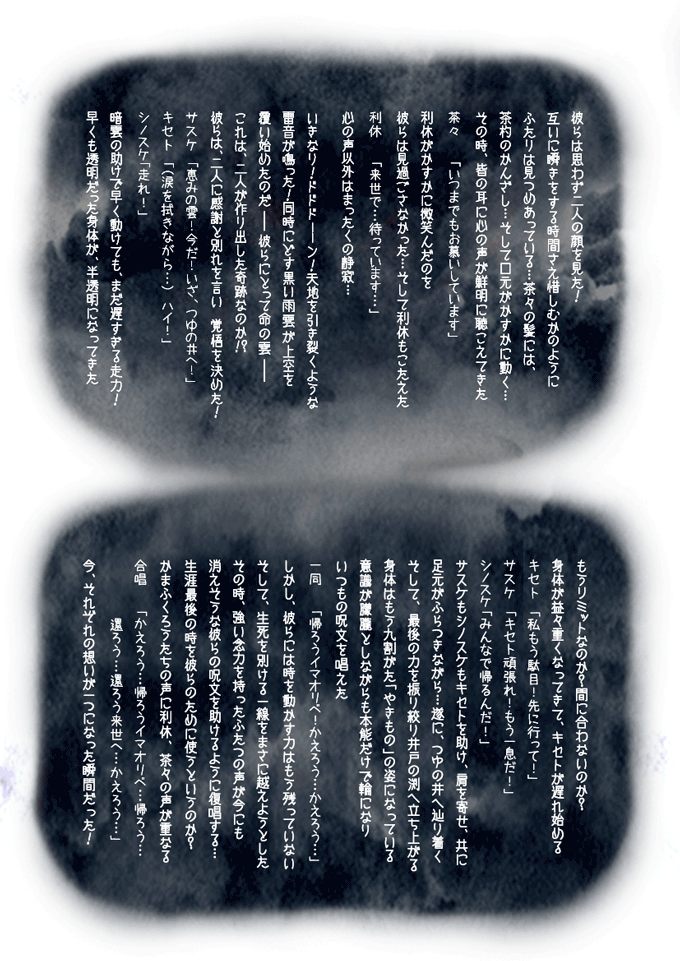 彼らは思わず二人の顔を見た！
互いに瞬きをする時間さえ惜しむかのように
ふたりは見つめあっている…茶々の髪には、
茶杓のかんざし…そして口元がかすかに動く…
その時、皆の耳に心の声が鮮明に聴こえてきた
茶々　「いつまでもお慕いしています」
利休がかすかに微笑んだのを
彼らは見過ごさなかった…そして利休もこたえた
利休　「来世で…待っています…」
心の声以外はまったくの静寂…
いきなり！ドドドーーン！天地を引き裂くような
雷音が鳴った！同時にどす黒い雨雲が上空を
覆い始めたのだ――彼らにとって命の雲――
これは、二人が作り出した奇跡なのか⁉
彼らは、二人に感謝と別れを言い　覚悟を決めた！
サスケ　「恵みの雲！今だ！いざ、つゆの井へ！」
キセト　「（涙を拭きながら…）ハイ！」
シノスケ「走れ！」
暗雲の助けで早く動けても、まだ遅すぎる走力！
早くも透明だった身体が、半透明になってきた
もうリミットなのか？間に合わないのか？
身体が益々重くなってきて、キセトが遅れ始める
キセト　「私もう駄目！先に行って！」
サスケ　「キセト頑張れ！もう一息だ！」
シノスケ「みんなで帰るんだ！」
サスケもシノスケもキセトを助け、肩を寄せ、共に
足元がふらつきながら…遂に、つゆの井へ辿り着く
そして、最後の力を振り絞り井戸の渕へ立ち上がる
身体はもう九割がた「やきもの」の姿になっている
意識が朦朧としながらも本能だけで輪になり
いつもの呪文を唱えた
一同　「帰ろうイマオリベ！かえろう…かえろう…」
しかし、彼らには時を動かす力はもう残っていない
そして、生死を別ける一線をまさに越えようとした
その時、強い念力を持ったふたつの声が今にも
消えそうな彼らの呪文を助けるように復唱する…
生涯最後の時を彼らのために使うというのか？
かまふくろうたちの声に利休、茶々の声が重なる
合唱　「かえろう…帰ろうイマオリベ…帰ろう？…
還ろう…還ろう来世へ…かえろう…」
今、それぞれの想いが一つになった瞬間だった！